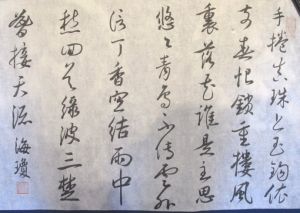 手捲真珠上玉鉤依
前春恨鎖重樓風
裏落花誰是主思
悠々青鳥不傳雲外
信丁香空結雨中
愁回首綠波三楚
暮接天流 海瓊